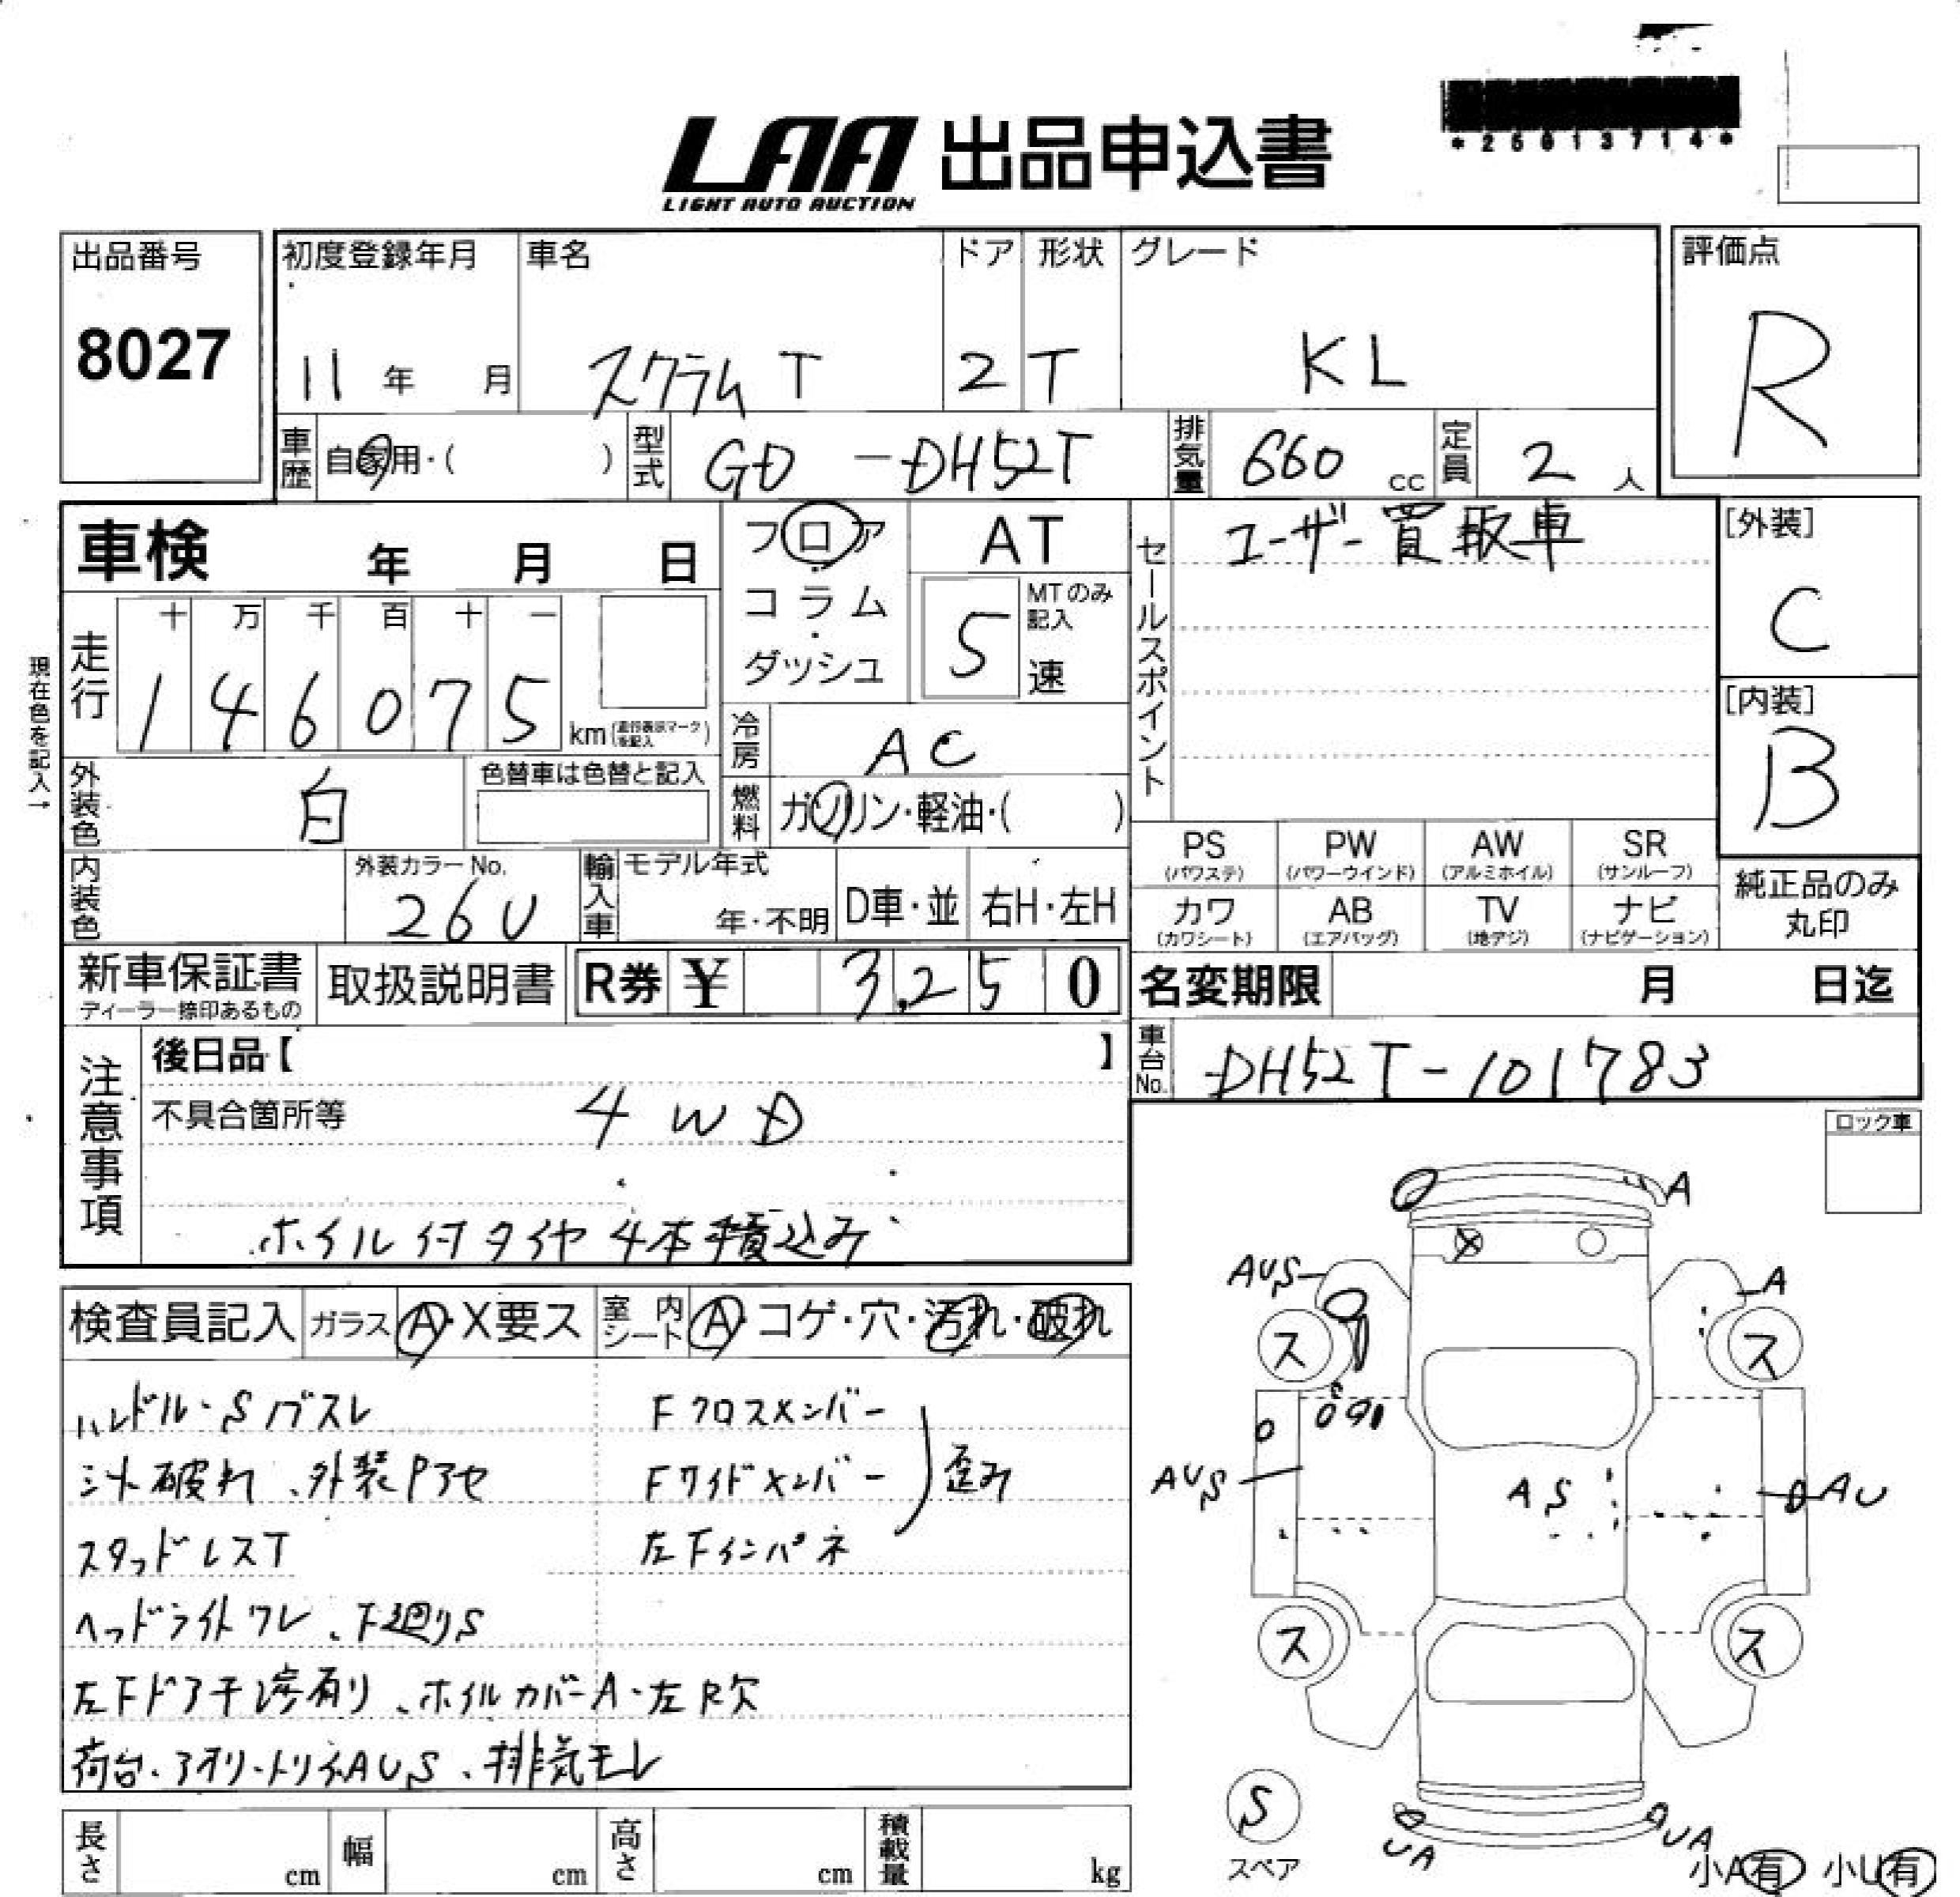 *25013714*
LAA 出品申込書
LIGHT AUTO AUCTION
出品番号
8027
初度登録年月
11 年 月
車名
スクラム T
ドア
2
形状
T
グレード
KL
評価点
R
車歴
自家用・( )
型式
GD -DH52T
排気量
660 cc
定員
2 人
車検 年 月 日
フロア・コラム・ダッシュ
AT
MTのみ記入
5 速
セールスポイント
ユーザー買取車
[外装]
C
[内装]
B
現在色を記入→
走行
十 万 千 百 十 一
1 4 6 0 7 5
km(走行表示マークを記入)
冷房
AC
燃料
ガソリン・軽油・( )
外装色
白
色替車は色替と記入
内装色
外装カラーNo.
26U
輸入車
モデル年式
年・不明
D車・並
右H・左H
PS
(パワステ)
PW
(パワーウインド)
AW
(アルミホイル)
SR
(サンルーフ)
カワ
(カワシート)
AB
(エアバッグ)
TV
(地デジ)
ナビ
(ナビゲーション)
純正品のみ
丸印
新車保証書
ディーラー捺印あるもの
取扱説明書
R券 ¥ 3,250
名変期限 月 日迄
車台No.
DH52T-101783
注意事項
後日品【 】
不具合箇所等
4WD
ホイル付タイヤ4本積込み
ロック車
検査員記入
ガラス A・X要ス
室内シート A・コゲ・穴・汚れ・破れ
ハンドル・Sノブスレ
シート破れ、外装Pアセ
スタッドレスT
ヘッドライトワレ、下廻りS
左Fドア干渉有り、ホイルカバーA・左R欠
荷台・アオリ・トリイAUS、排気モレ
Fクロスメンバー
Fサイドメンバー
歪み
左Fインパネ
A
AUS
A
ス
ス
AUS
AS
AU
ス
ス
S
スペア
UA
UA
小A有 小U有
長さ cm
幅 cm
高さ cm
積載量 kg